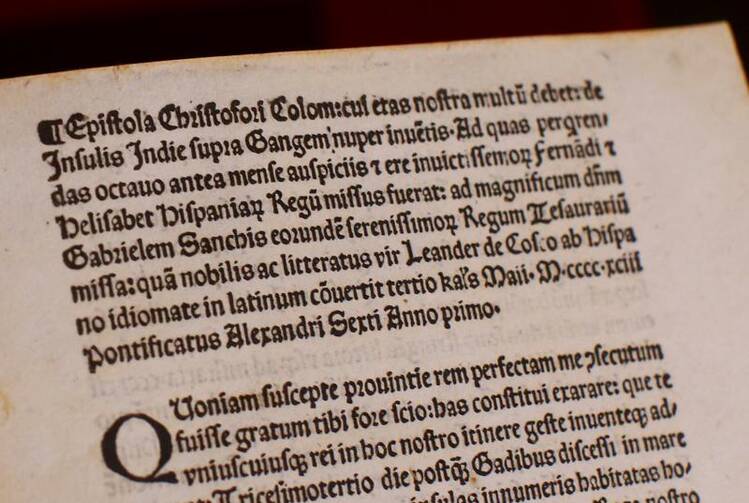 ¶ Epistola Christofori Colom: cui etas nostra multũ debet: de
Insulis Indie supra Gangem nuper inuẽtis. Ad quas perqren-
das octauo antea mense auspiciis ⁊ ere inuictissemoꝝ Fernãdi ⁊
Helisabet Hispaniaꝝ Regũ missus fuerat: ad magnificum dñm
Gabrielem Sanchis eorundẽ serenissimoꝝ Regum Tesaurariũ
missa: quã nobilis ac litteratus vir Leander de Cosco ab Hispa
no idiomate in latinum cõuertit tertio kal's Maii. M.cccc.xciii
Pontificatus Alexandri Sexti Anno primo.
Quoniam suscepte prouintie rem perfectam me ꝯsecutum
fuisse gratum tibi fore scio: has constitui exarare: que te
vniuscuiusqꝫ rei in hoc nostro itinere geste inuenteqꝫ ad-
Tricesimotertio die postꝗ̃ Gadibus discessi in mare
insulas innumeris habitatas ho-
nostro